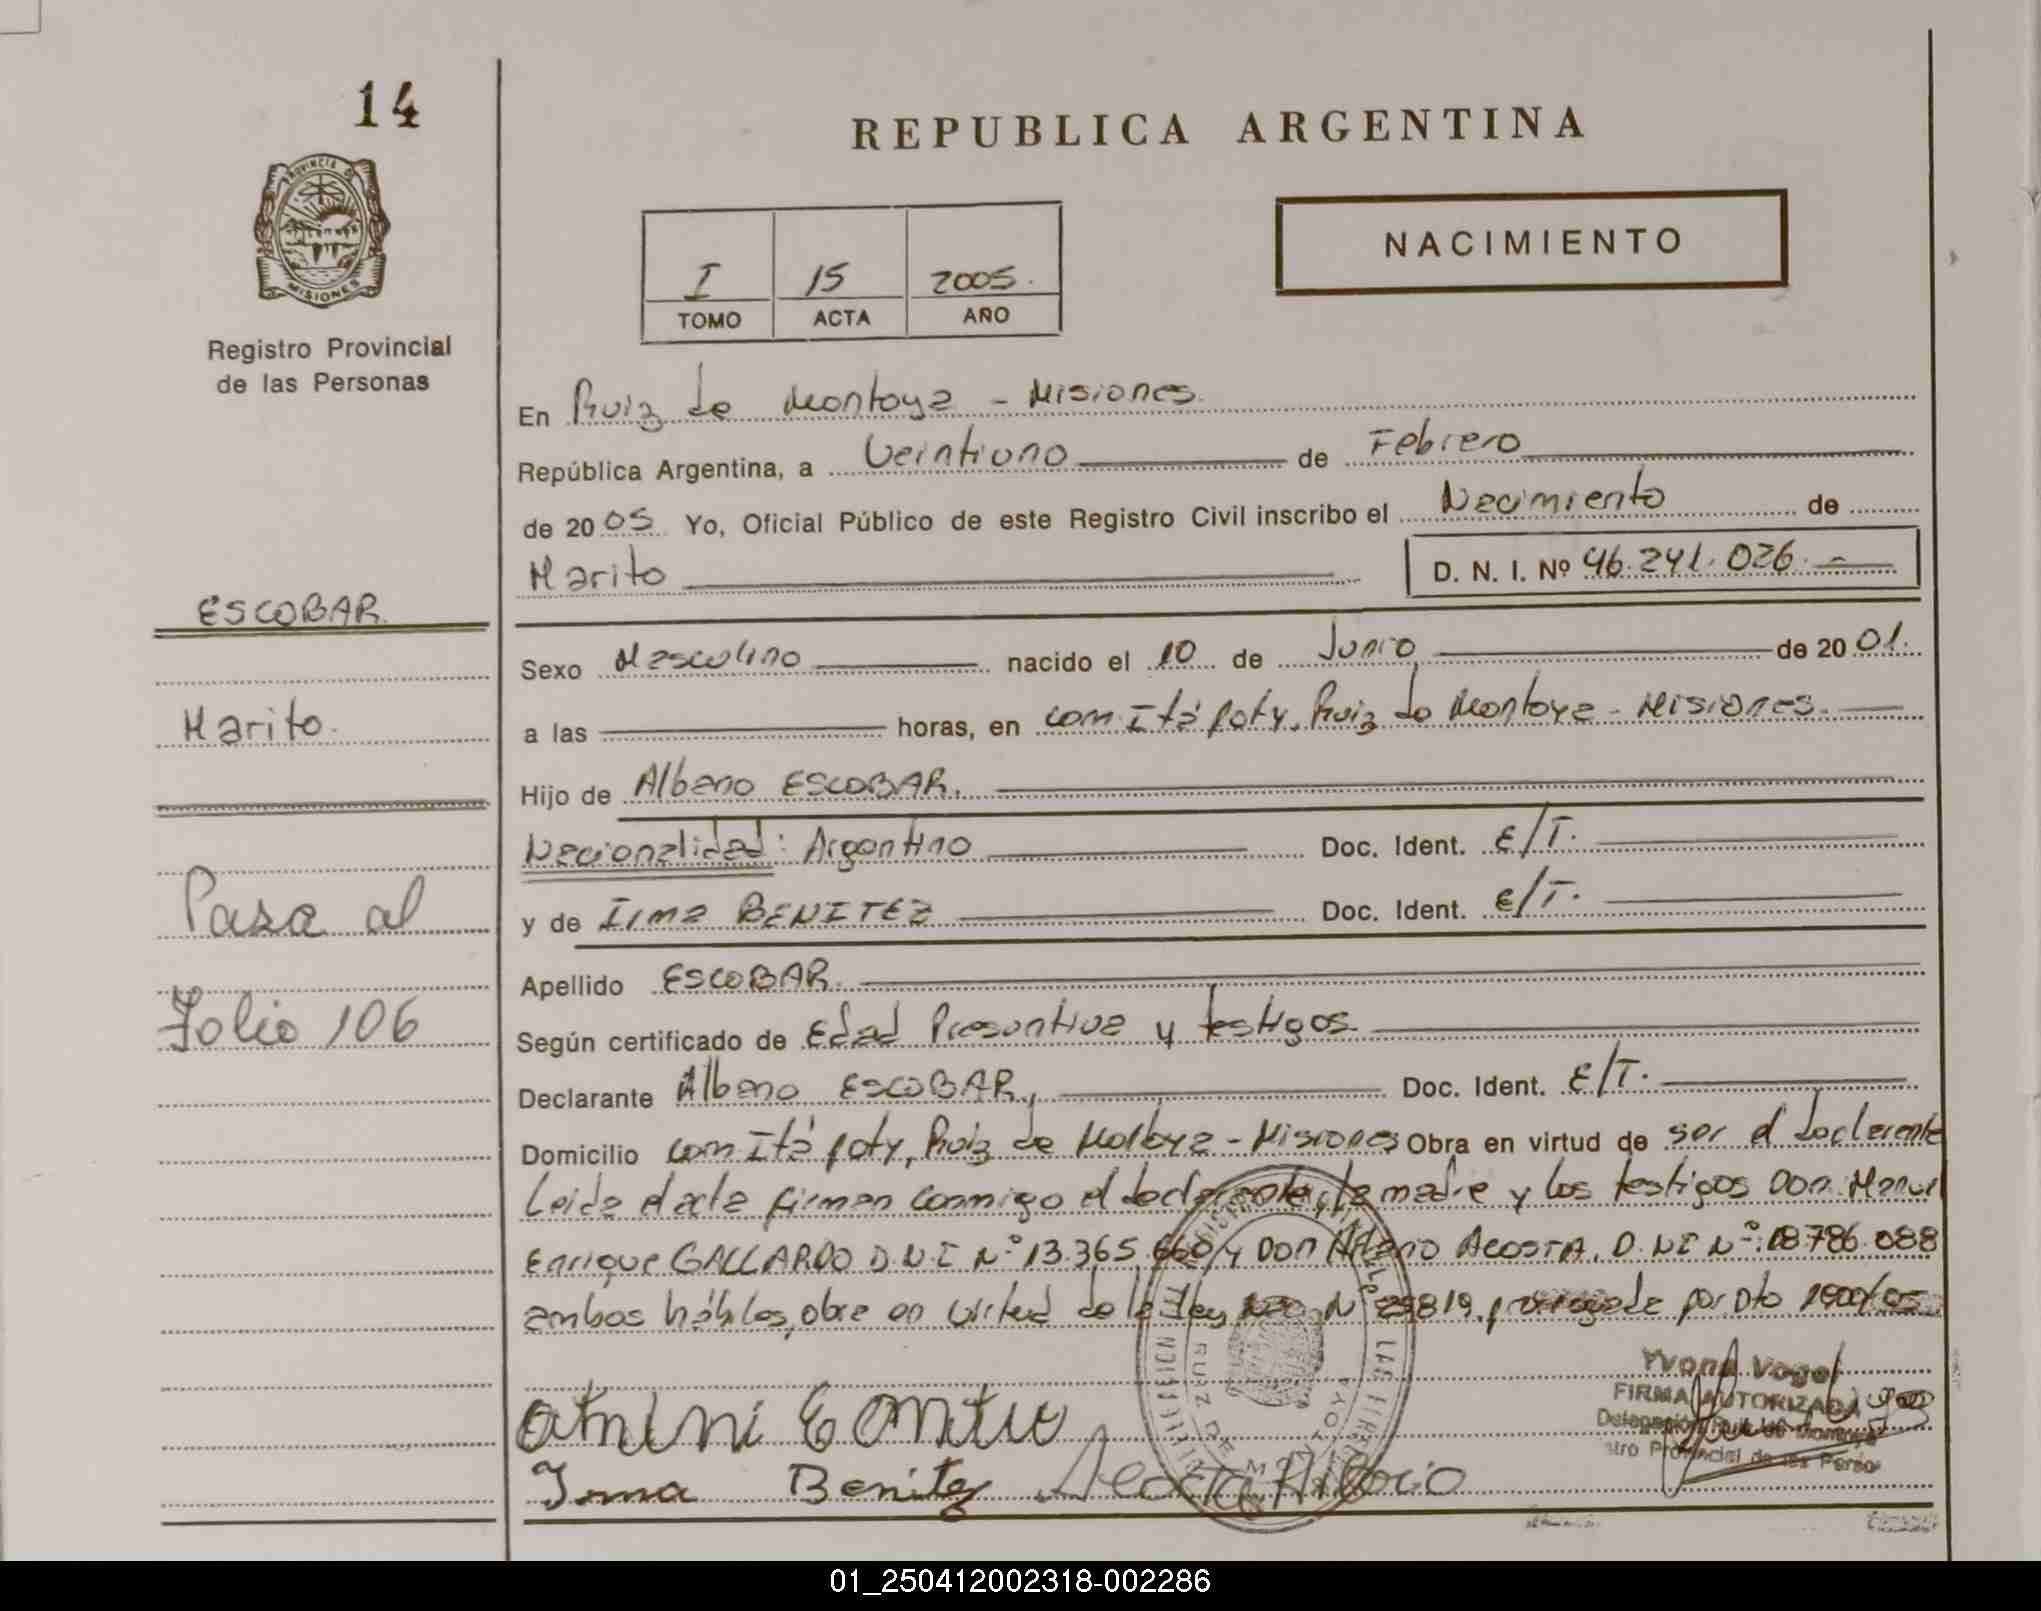 14
REPUBLICA ARGENTINA
PROVINCIA DE
MISIONES
NACIMIENTO
I 15 2005.
TOMO ACTA AÑO
Registro Provincial
de las Personas
En Ruiz de Montoya - Misiones.
República Argentina, a Veintiuno de Febrero
de 20 05. Yo, Oficial Público de este Registro Civil inscribo el Nacimiento de
Marito D. N. I. Nº 46.241.026.-
ESCOBAR.
Sexo Masculino nacido el 10 de Junio de 20 01.
Marito.
a las horas, en com Itá Poty, Ruiz de Montoya - Misiones.
Hijo de Albano ESCOBAR.
Nacionalidad: Argentino Doc. Ident. E/T.
Pasa al
y de Irma BENITEZ Doc. Ident. E/T.
Apellido ESCOBAR.
Folio 106
Según certificado de Edad Presuntiva y testigos.
Declarante Albano ESCOBAR, Doc. Ident. E/T.
Domicilio com Itá poty, Ruiz de Motoya - Misiones Obra en virtud de ser el declarante
Leida el acta firman conmigo el declarante, la madre y los testigos Don Manuel
Enrique GALLARDO D.N.I Nº 13.365.660 y Don ACOSTA, D.NI Nº: 18.786.088
ambos hábiles, obra en virtud de la ley Nº 25819, por Dto
Yvone Vogel
FIRMA AUTORIZADA
Delegación Ruiz de Montoya
Registro Provincial de las Personas
Irma Benitez Acosta
RUIZ DE MONTOYA
01_250412002318-002286